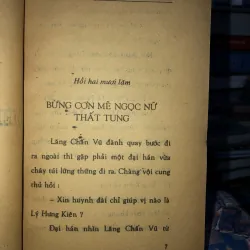 Hồi hai mươi lăm
BỪNG CƠN MÊ NGỌC NỮ
THẤT TUNG
Lăng Chấn Vũ đành quay bước đi
ra ngoài thì gặp phải một đại hán vừa
chạy tới lửng thửng đi ra. Chàng vội cung
thủ hỏi :
– Xin huynh đài chỉ giúp vị nào là
Lý Hưng Kiên ?
Đại hán nhìn Lăng Chấn Vũ từ
7